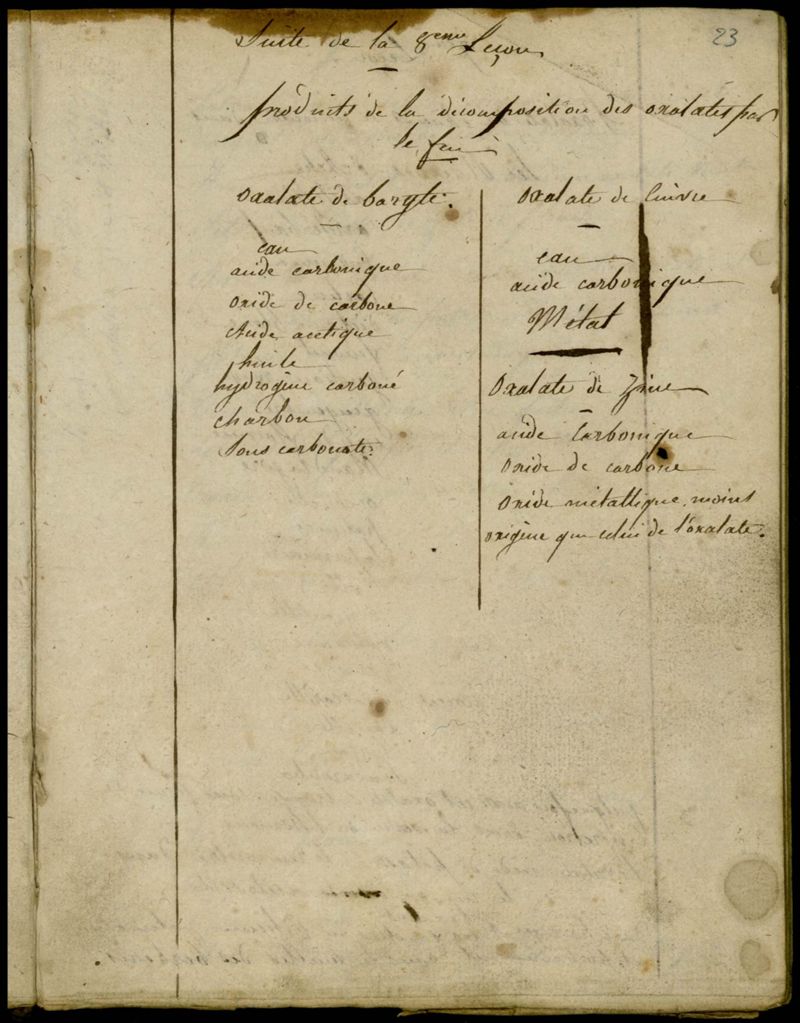 23
Suite de la 8eme Leçon
produits de la décomposition des oxalates par
le feu
oxalate de baryte.
eau
acide carbonique
oxide de carbone
Acide acetique
huile
hydrogène carboné
charbon
Sous carbonate.
oxalate de Cuivre
eau
acide carbonique
Métal
Oxalate de zinc
acide Carbonique
Oxide de carbone
Oxide métallique moins
oxigène que celui de l'oxalate.